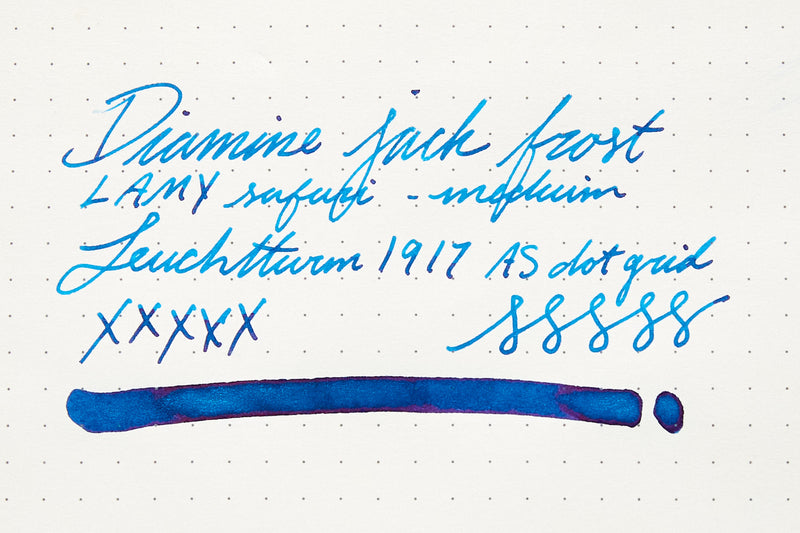 Diamine jack frost
LAMY safari - medium
Leuchtturm 1917 A5 dot grid
XXXXX 88888